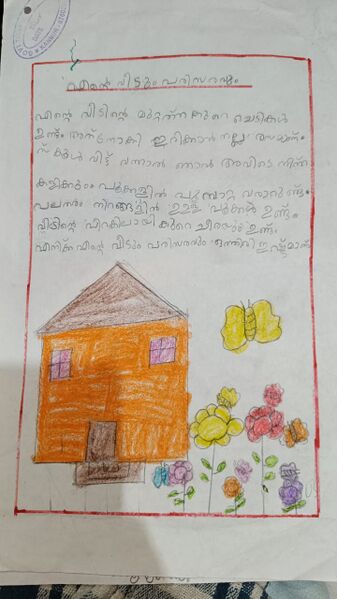 എന്റെ വീടും പരിസരവും
എന്റെ വീടിന്റെ മുറ്റത്ത് കുറെ ചെടികൾ
ഉണ്ട്. അത് നോക്കി ഇരിക്കാൻ നല്ല രസമാണ്.
സ്കൂൾ വിട്ട് വന്നാൽ ഞാൻ അവിടെ നിന്ന്
കളിക്കും പൂക്കളിൽ പൂമ്പാറ്റ വരാറുണ്ട്.
പല നിറങ്ങളിൽ ഉള്ള പൂക്കൾ ഉണ്ട്.
വീടിന്റെ പിറകിലായി കുറെ ചീരയും ഉണ്ട്.
എനിക്ക് എന്റെ വീടും പരിസരവും ഒത്തിരി ഇഷ്ട്ടമാണ്